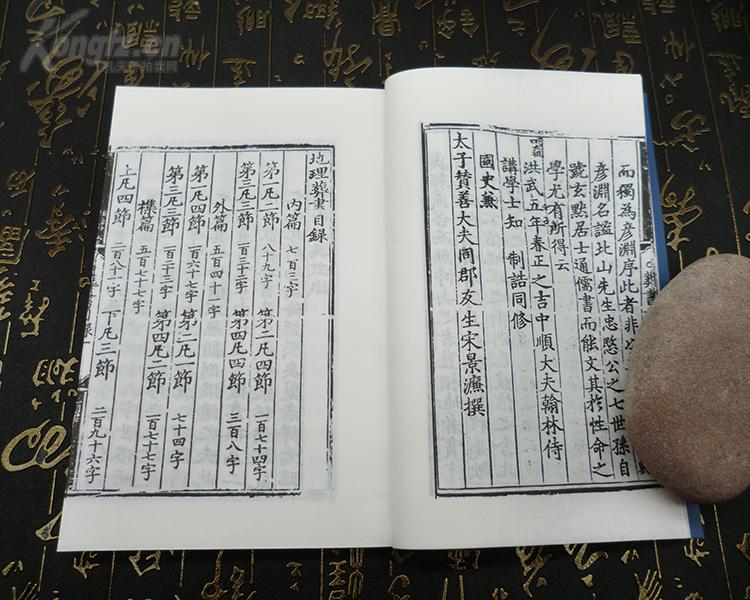 而獨為彦淵序此者非公
彦淵名謐北山先生忠愍公之七世孫自
號玄默居士通儒書而能文其於性命之
學尤有所得云
洪武五年春正之吉中順大夫翰林侍
講學士知 制誥同修
國史兼
太子贊善大夫同郡友生宋景濂撰
地理葬書目録
内篇 七百三字
第一凡二節 八十九字 第二凡四節 一百七十四字
第三凡三節 一百三十二字 第四凡四節 三百八字
外篇 五百四十一字
第一凡四節 一百六十七字 第二凡一節 七十四字
第三凡三節 一百二十三字 第四凡二節 一百七十七字
襍篇 五百七十七字
上凡四節 二百八十一字 下凡三節 二百九十六字
Kongfz.cn
孔夫子拍卖网